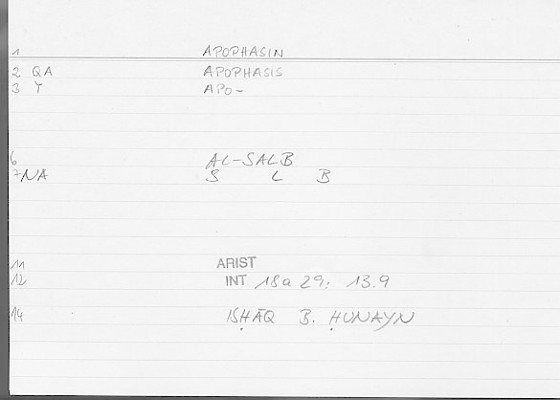 1 APOPHASIN
2 QA APOPHASIS
3 Y APO-
6 AL-SALB
7 NA S L B
11 ARIST
12 INT 18a 29; 13.9
14 ISḤĀQ B. ḤUNAYN